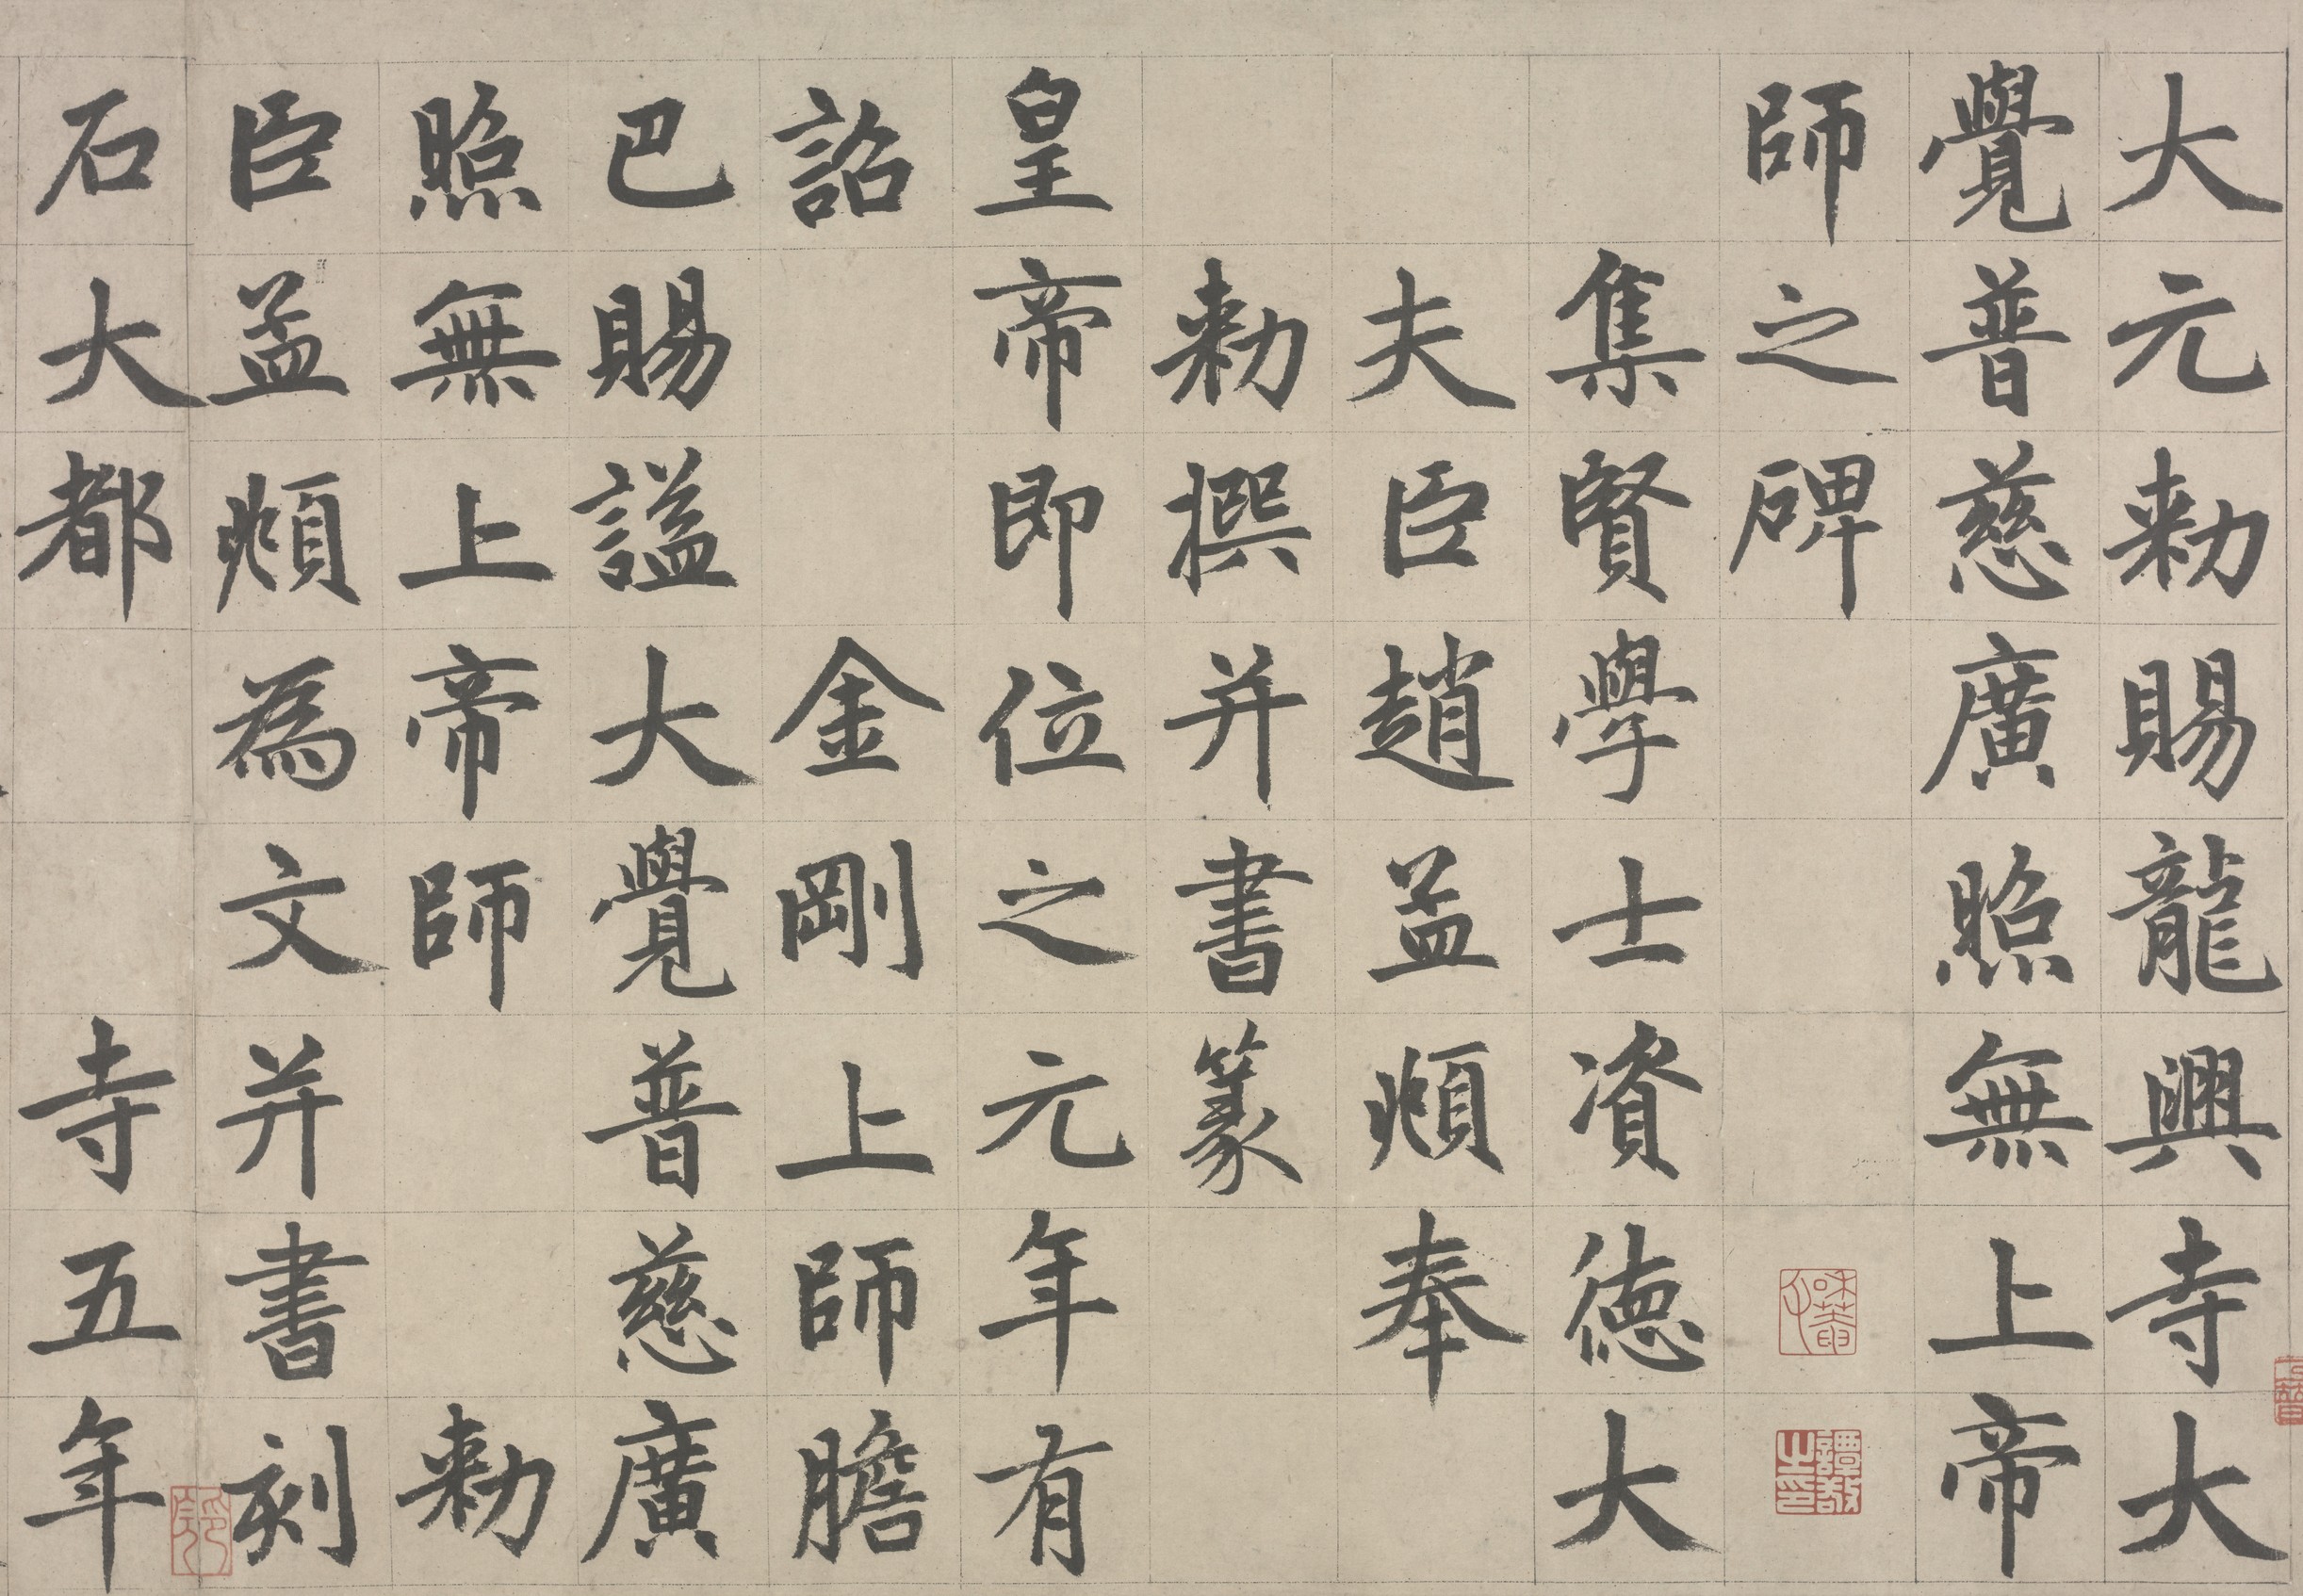 大元勅賜龍興寺大
覺普慈廣照無上帝
師之碑
譚敬之印
集賢學士資德大
夫臣趙孟頫奉
勅撰并書篆
皇帝即位之元年有
詔金剛上師膽
巴賜謚大覺普慈廣
照無上帝師勅
臣孟頫為文并書刻
石大都寺五年